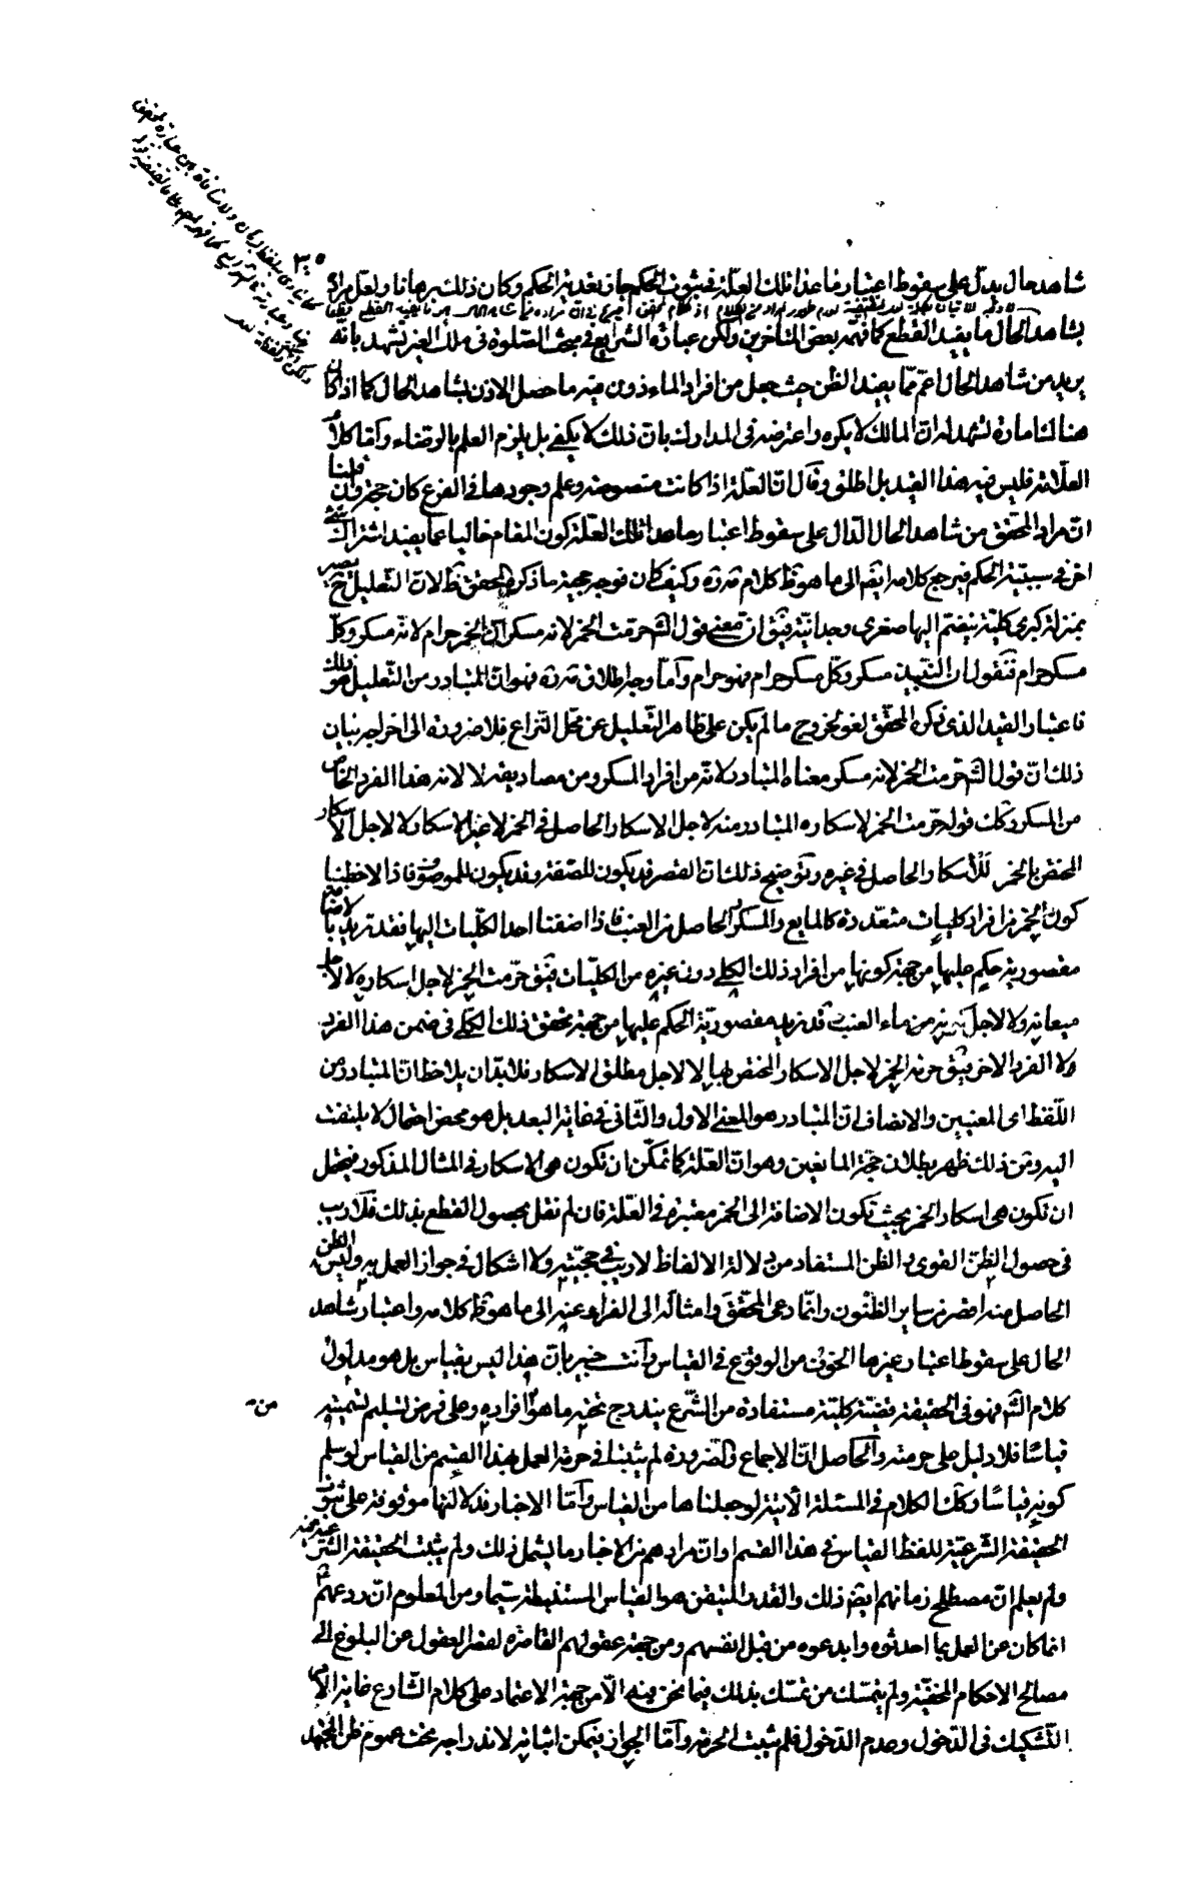 شاهد حال يدل على سقوط اعتبار ما عدا تلك العلة في ثبوت الحكم جاز تعدية الحكم وكان ذلك برهانا ولعل مراده
بشاهد الحال ما يفيد القطع كما فهمه بعض المتأخرين ولكن عبارة الشرايع في مبحث الصلوة في ملك الغير تشهد بانه
يريد من شاهد الحال اعم مما يفيد الظن حيث جعل من افراد الماءذون فيه ما حصل الاذن بشاهد الحال كما اذا كان
هناك امارة تشهد ان المالك لا يكره واعترضه في المدارك بان ذلك لا يكفي بل يلزم العلم بالرضاء واما كلام
العلامة فليس فيه هذا القيد بل اطلق وقال ان العلة اذا كانت منصوصة وعلم وجودها في الفرع كان حجة وان قلنا
ان مراد المحقق من شاهد الحال الدال على سقوط اعتبار ما عدا تلك العلة كون المقام خاليا عما يفيد اشتراك شئ
اخر في سببية الحكم فيرجع كلامه ايضا الى ما هو ظ كلام مة ره وكيف كان فوجه حجية ما ذكره المحقق ظ لان التعليل ح يصير
بمنزلة كبرى كلية ينضم اليها صغرى وجدانية فيق ان معنى قول الش حرمت الخمر لانه مسكر ان الخمر حرام لانه مسكر وكل
مسكر حرام فنقول ان النبيذ مسكر وكل مسكر حرام فهو حرام واما وجه اطلاق مة ره فهو ان المتبادر من التعليل هو ذلك
فاعتبار القيد الذي ذكره المحقق لغو لخروج ما لم يكن على ظاهر التعليل عن محل النزاع فلا ضرورة الى اخراجه بيان
ذلك ان قول الش حرمت الخمر لانه مسكر معناه المتبادر لانه من افراد المسكر ومن مصاديقه لا لانه هذا الفرد الخاص
من المسكر وكك قوله حرمت الخمر لاسكاره المتبادر منه لاجل الاسكار الحاصل في الخمر لا غير الاسكار لا لاجل الاسكار
المختص بالخمر لا الاسكار الحاصل في غيره وتوضيح ذلك ان القصر قد يكون للصفة وقد يكون للموصوف فاذا لاحظنا
كون الخمر من افراد كليات متعددة كالمايع والمسكر والحاصل من العنب فاذا اضفنا احد الكليات اليها فقد تريد بالاضافة
مقصورية حكم عليها من جهة كونها من افراد ذلك الكلي دون غيره من الكليات فيق حرمت الخمر لاجل اسكاره لا لاجل
ميعانه ولا لاجل كونه من ماء العنب وقد نريد مقصورية الحكم عليها من جهة تحقق ذلك الكلي في ضمن هذا الفرد
ولا الفرد الاخر فيق حرمة الخمر لاجل الاسكار المختص بها لا لاجل مطلق الاسكار فلا بد ان يلاحظ ان المتبادر من
اللفظ اى المعنيين والانصاف ان المتبادر هو المعنى الاول والثاني في غاية البعد بل هو محض احتمال لا يلتفت
اليه ومن ذلك ظهر بطلان حجة المانعين وهو ان العلة كما تمكن ان تكون هى الاسكار في المثال المذكور فيحتمل
ان تكون هى اسكار الخمر بحيث تكون الاضافة الى الخمر معتبرة في العلة فان لم نقل بحصول القطع بذلك فلا ريب
في حصول الظن القوى به والظن المستفاد من دلالة الالفاظ لا ريب في حجيته ولا اشكال في جواز العمل به وليس الظن
الحاصل منه اقصر من ساير الظنون وانما دعى المحقق وامثاله الى الفرار عنه الى ما هو ظ كلامه واعتبار شاهد
الحال على سقوط اعتبار غيرها الخوف من الوقوع في القياس وانت خبير بان هذا ليس بقياس بل هو مدلول
كلام الش فهو في الحقيقة قضية كلية مستفادة من الشرع يندرج تحته ما هو افراده وعلى فرض تسليم تسميته
قياسا فلا دليل على حرمته والحاصل ان الاجماع والضرورة لم يثبتا في حرمة العمل بهذا القسم من القياس لو سلم
كونه قياسا وكك الكلام في المسئلة الاتية لو جعلناها من القياس واما الاخبار فدلالتها موقوفة على ثبوت
الحقيقة الشرعية للفظ القياس في هذا القسم او ان مرادهم من الاخبار ما يشمل ذلك ولم يثبت الحقيقة الشرعية فيه
ولم يعلم ان مصطلح زمانهم ايضا ذلك والقدر المتيقن هو القياس المستنبطة سيما ومن المعلوم ان ردعهم
انما كان عن العمل بما احدثوه وابدعوه من قبل انفسهم ومن جهة عقولهم القاصرة لقصر العقول عن البلوغ الى
مصالح الاحكام الخفية ولم يتمسك من تمسك بذلك فيما نحن فيه الا من جهة الاعتماد على كلام الشارع غاية الامر
التشكيك في الدخول وعدم الدخول فلم يثبت الحرمة واما الجواز فيمكن اثباته لاندراجه تحت عموم ظن المجتهد